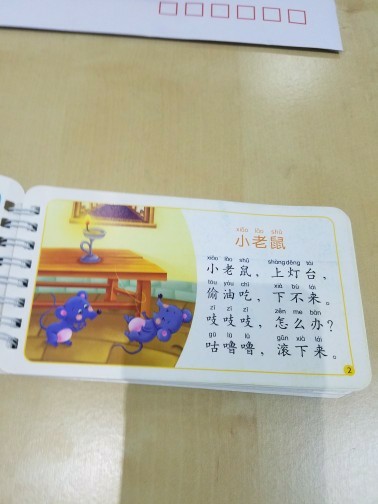 xiǎo lǎo shǔ
小老鼠
xiǎo lǎo shǔ shàng dēng tái
小老鼠，上灯台，
tōu yóu chī xià bù lái
偷油吃，下不来。
zī zī zī zěn me bàn
吱吱吱，怎么办？
gū lū lū gǔn xià lái
咕噜噜，滚下来。
2